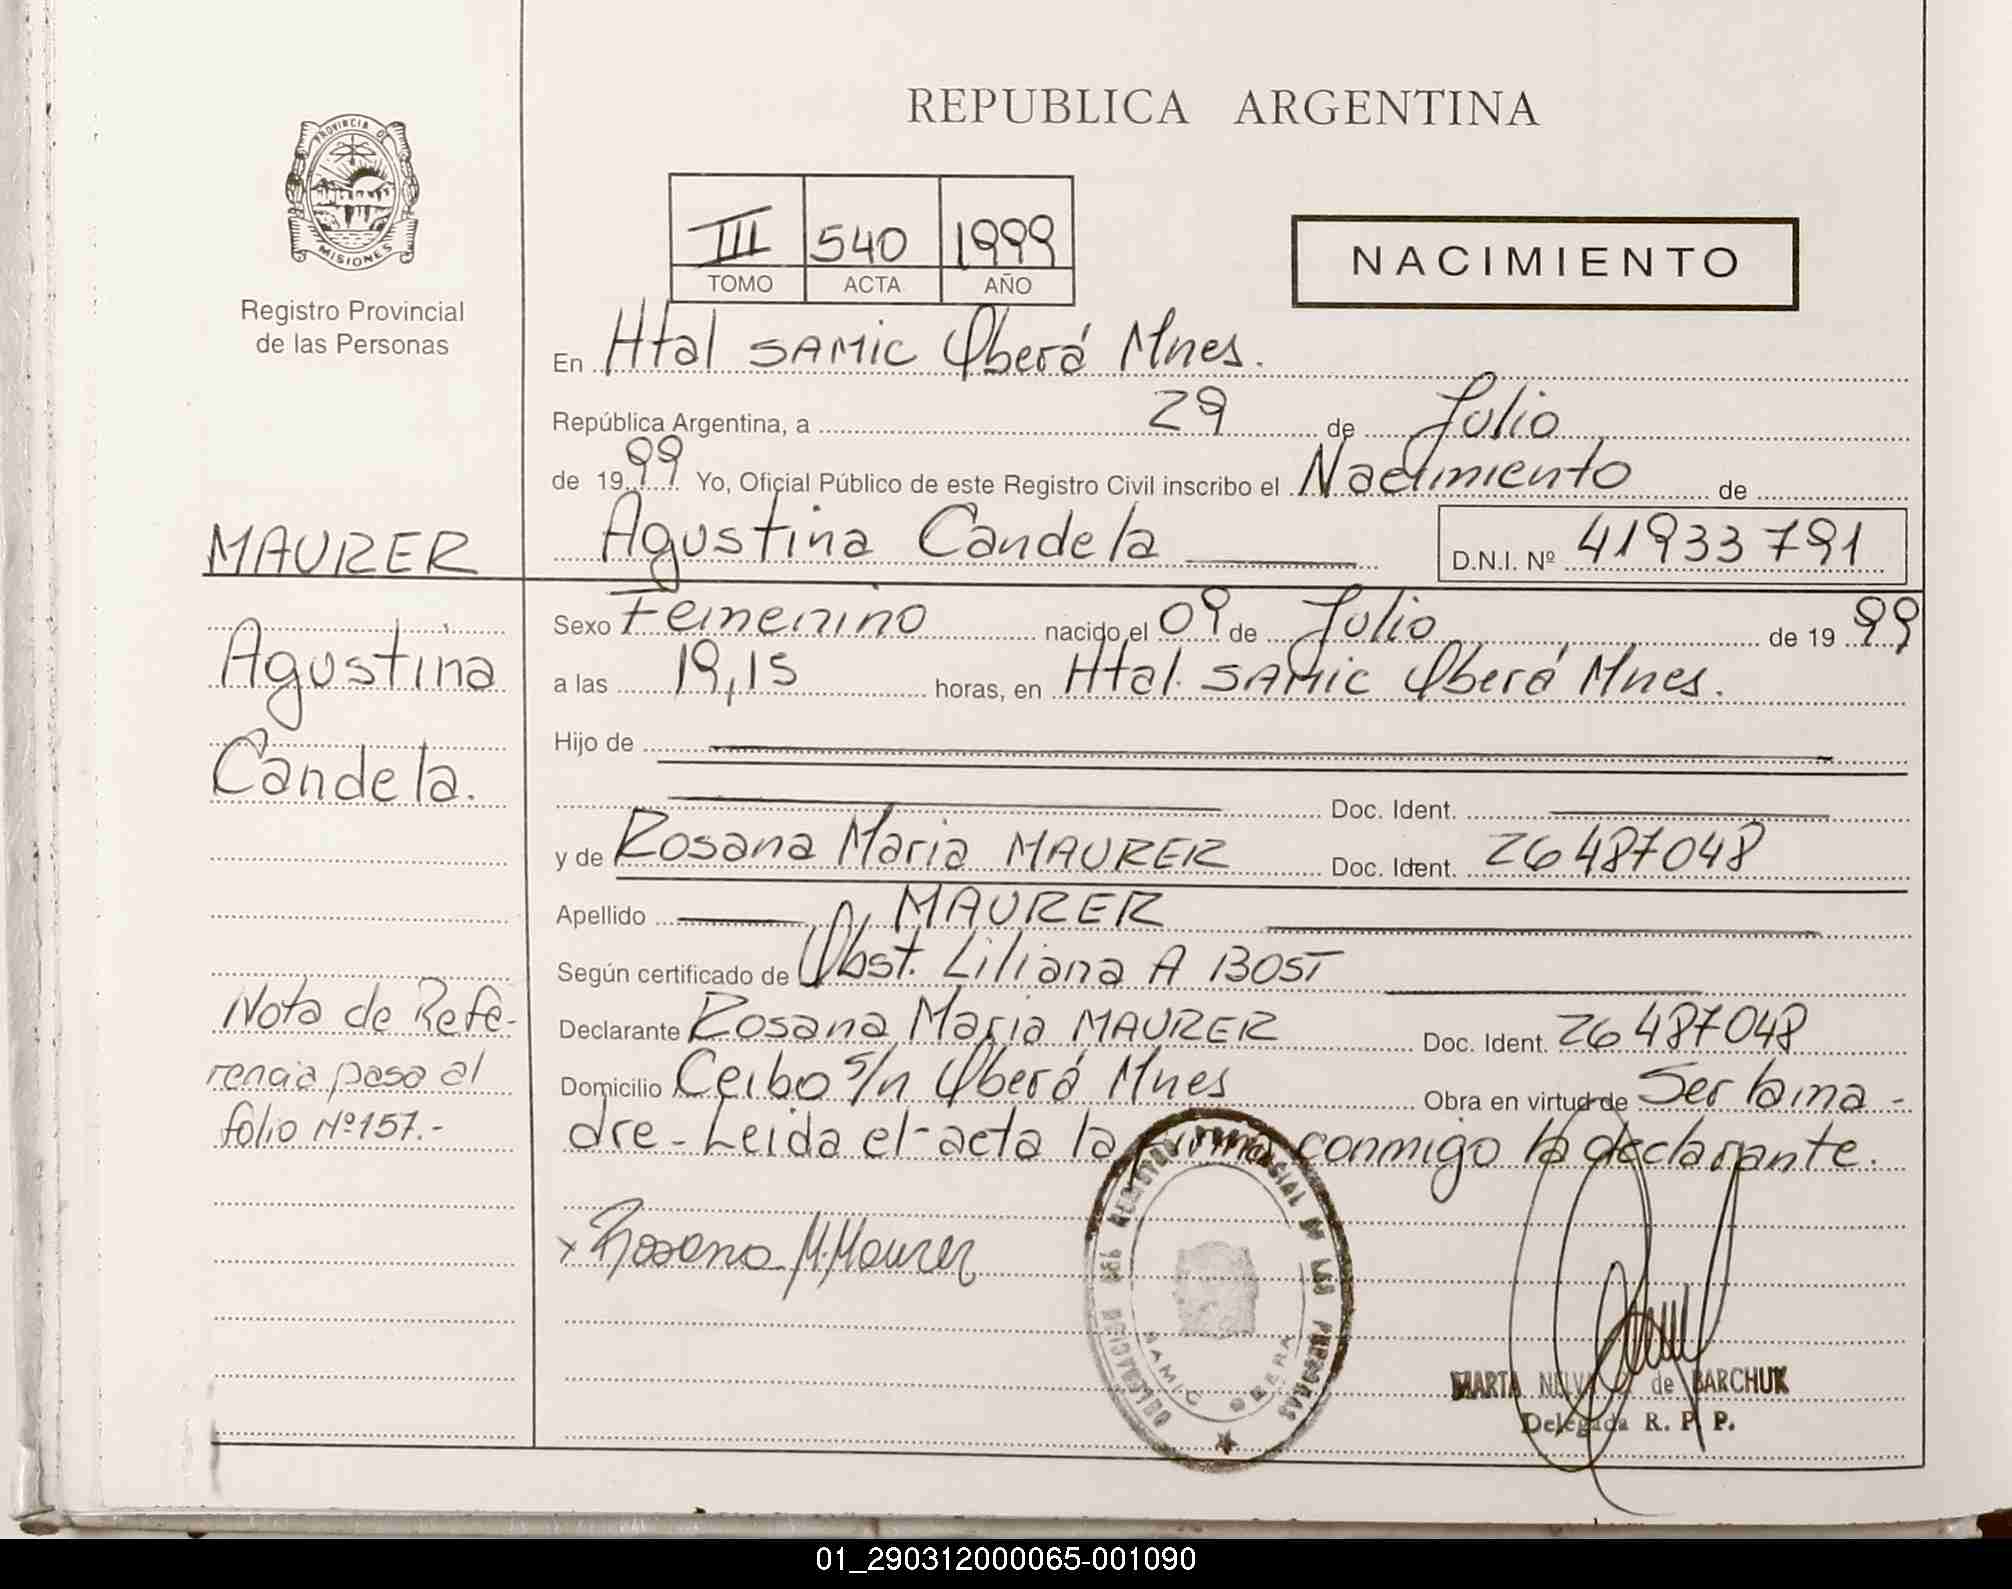 REPUBLICA ARGENTINA
PROVINCIA DE
MISIONES
Registro Provincial
de las Personas
III 540 1999
TOMO ACTA AÑO
NACIMIENTO
En Htal SAMIC Oberá Mnes.
República Argentina, a 29 de Julio
de 1999 Yo, Oficial Público de este Registro Civil inscribo el Nacimiento de
Agustina Candela D.N.I. Nº 41933791
MAURER
Agustina
Candela.
Sexo Femenino nacido el 09 de Julio de 1999
a las 19,15 horas, en Htal. SAMIC Oberá Mnes.
Hijo de
Doc. Ident.
y de Rosana Maria MAURER Doc. Ident. 26487048
Apellido MAURER
Según certificado de Obst. Liliana A BOST
Declarante Rosana Maria MAURER Doc. Ident. 26487048
Domicilio Ceibo s/n Oberá Mnes Obra en virtud de Ser la ma-
dre - Leida el acta la firma conmigo la declarante.
Nota de Refe-
rencia pasa al
folio Nº 157.-
x Rosana M. Maurer
DELEGACION DEL REGISTRO PROVINCIAL DE LAS PERSONAS
SAMIC OBERA
MARTA de BARCHUK
Delegada R. P. P.
01_290312000065-001090